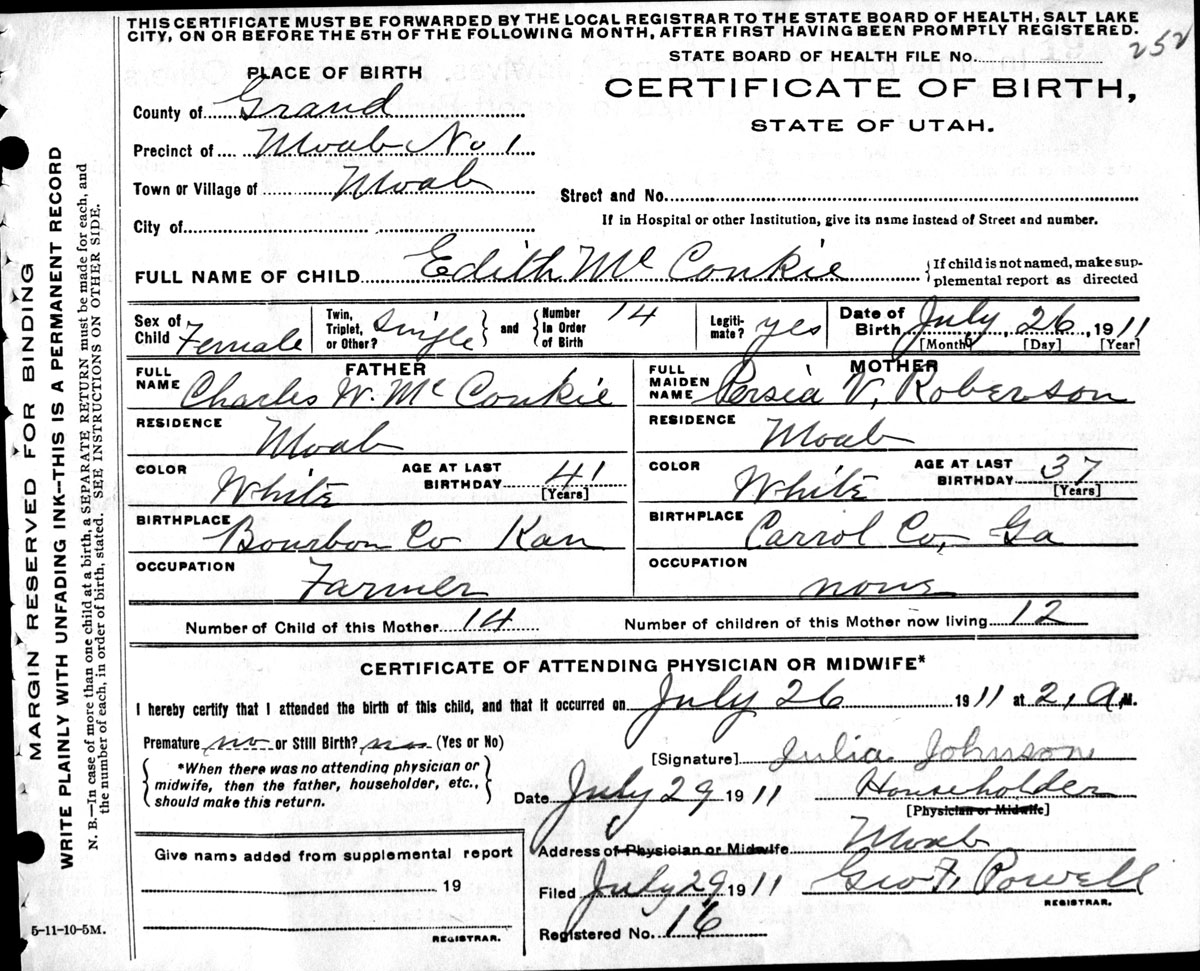 THIS CERTIFICATE MUST BE FORWARDED BY THE LOCAL REGISTRAR TO THE STATE BOARD OF HEALTH, SALT LAKE
CITY, ON OR BEFORE THE 5TH OF THE FOLLOWING MONTH, AFTER FIRST HAVING BEEN PROMPTLY REGISTERED.
STATE BOARD OF HEALTH FILE No. 252
PLACE OF BIRTH
CERTIFICATE OF BIRTH,
STATE OF UTAH.
County of Grand
Precinct of Moab No 1
Town or Village of Moab
Street and No.
City of
If in Hospital or other Institution, give its name instead of Street and number.
FULL NAME OF CHILD Edith Mc Conkie
If child is not named, make sup-
plemental report as directed
Sex of Child Female
Twin, Triplet, or Other? Single and Number In Order of Birth 14
Legiti-mate? yes
Date of Birth July 26, 1911
[Month] [Day] [Year]
FATHER
FULL NAME Charles W. Mc Conkie
RESIDENCE Moab
COLOR White AGE AT LAST BIRTHDAY 41 [Years]
BIRTHPLACE Bourbon Co Kan
OCCUPATION Farmer
MOTHER
FULL MAIDEN NAME Persia V. Roberson
RESIDENCE Moab
COLOR White AGE AT LAST BIRTHDAY 37 [Years]
BIRTHPLACE Carrol Co, Ga
OCCUPATION none
Number of Child of this Mother 14 Number of children of this Mother now living 12
CERTIFICATE OF ATTENDING PHYSICIAN OR MIDWIFE*
I hereby certify that I attended the birth of this child, and that it occurred on July 26 1911 at 2, a M.
Premature no or Still Birth? no (Yes or No)
*When there was no attending physician or
midwife, then the father, householder, etc.,
should make this return.
[Signature] Julia Johnson
Date July 29 1911 Householder
[Physician or Midwife]
Address of Physician or Midwife Moab
Give name added from supplemental report
19
REGISTRAR.
Filed July 29 1911 Geo F. Powell
REGISTRAR.
Registered No. 16
5-11-10-5M.
MARGIN RESERVED FOR BINDING
WRITE PLAINLY WITH UNFADING INK—THIS IS A PERMANENT RECORD
N. B.—In case of more than one child at a birth, a SEPARATE RETURN must be made for each, and
the number of each, in order of birth, stated. SEE INSTRUCTIONS ON OTHER SIDE.